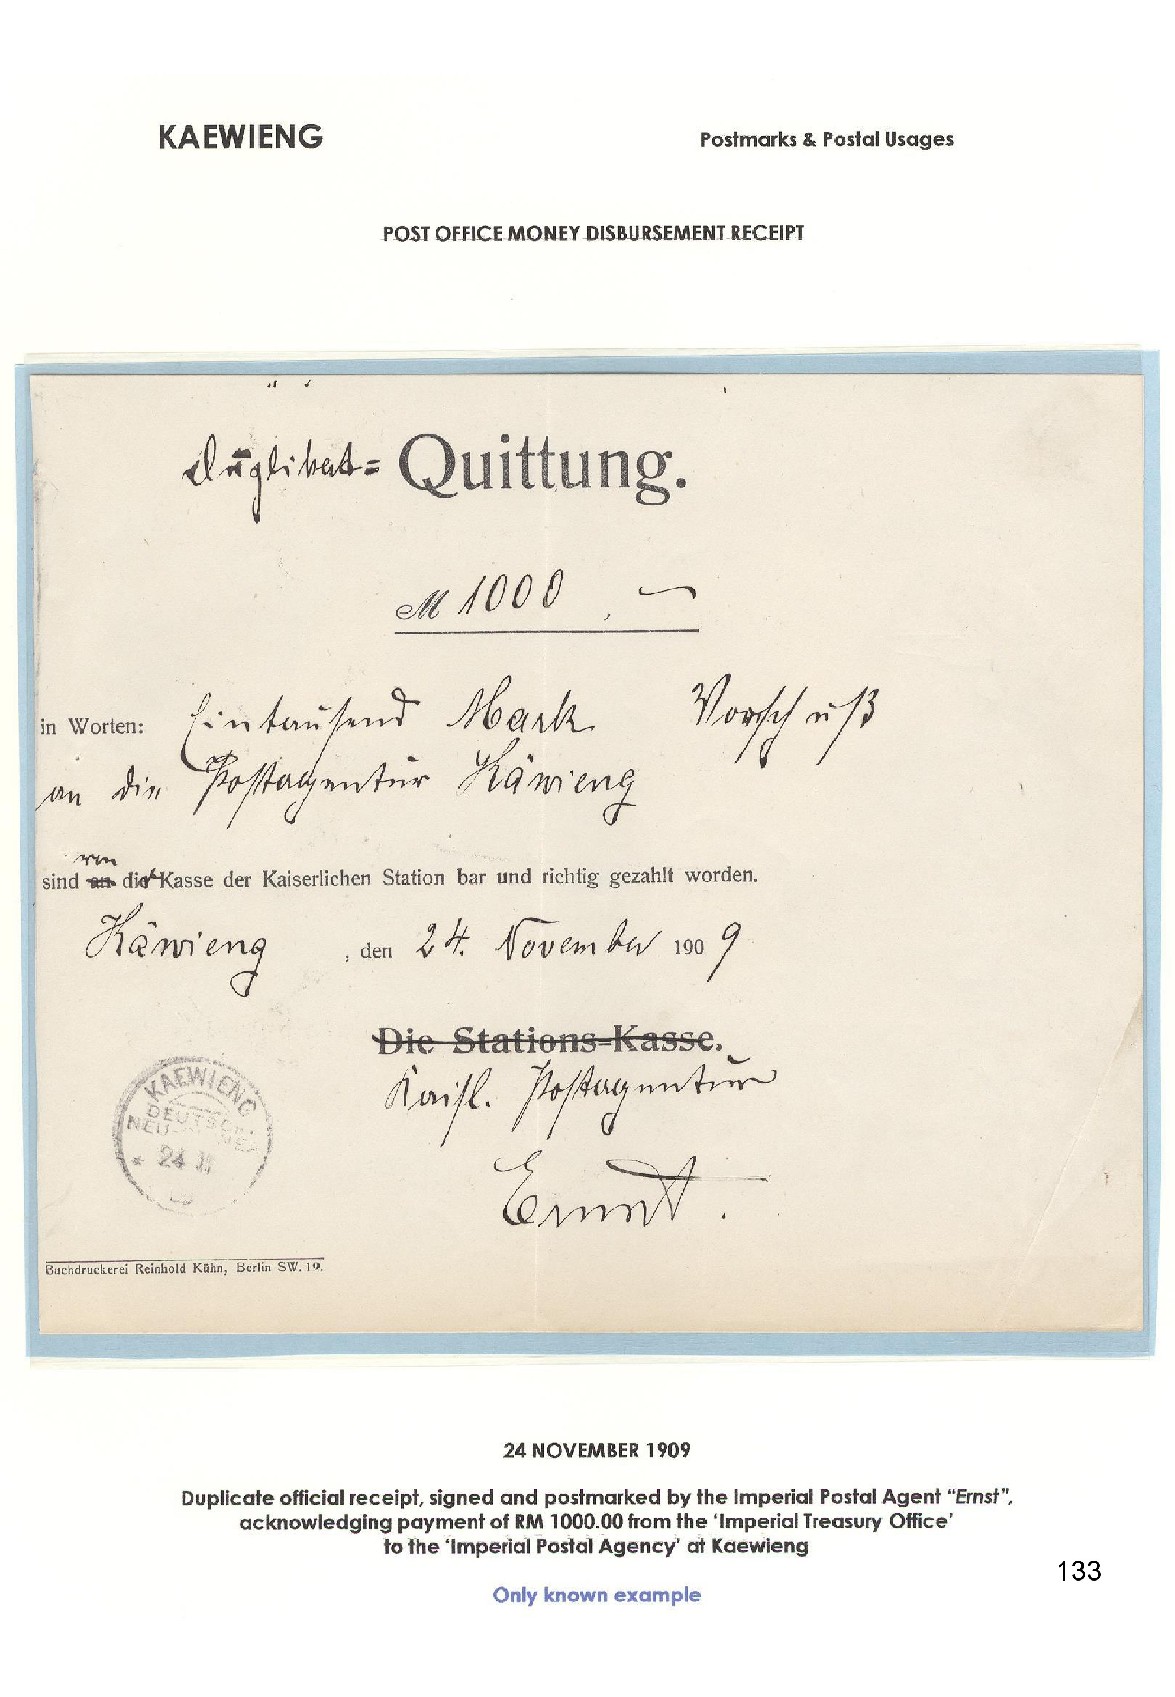 KAEWIENG
Postmarks & Postal Usages
POST OFFICE MONEY DISBURSEMENT RECEIPT
Duplikat= Quittung.
M 1000 , —
in Worten: Eintausend Mark Vorschuß
an die Postagentur Käwieng
von
sind an die Kasse der Kaiserlichen Station bar und richtig gezahlt worden.
Käwieng , den 24. November 1909
Die Stations-Kasse.
Kaisl. Postagentur
Ernst.
KAEWIENG
DEUTSCH-
NEU-GUINEA
* 24 11
Buchdruckerei Reinhold Kühn, Berlin SW. 19.
24 NOVEMBER 1909
Duplicate official receipt, signed and postmarked by the Imperial Postal Agent "Ernst",
acknowledging payment of RM 1000.00 from the 'Imperial Treasury Office'
to the 'Imperial Postal Agency' at Kaewieng
133
Only known example